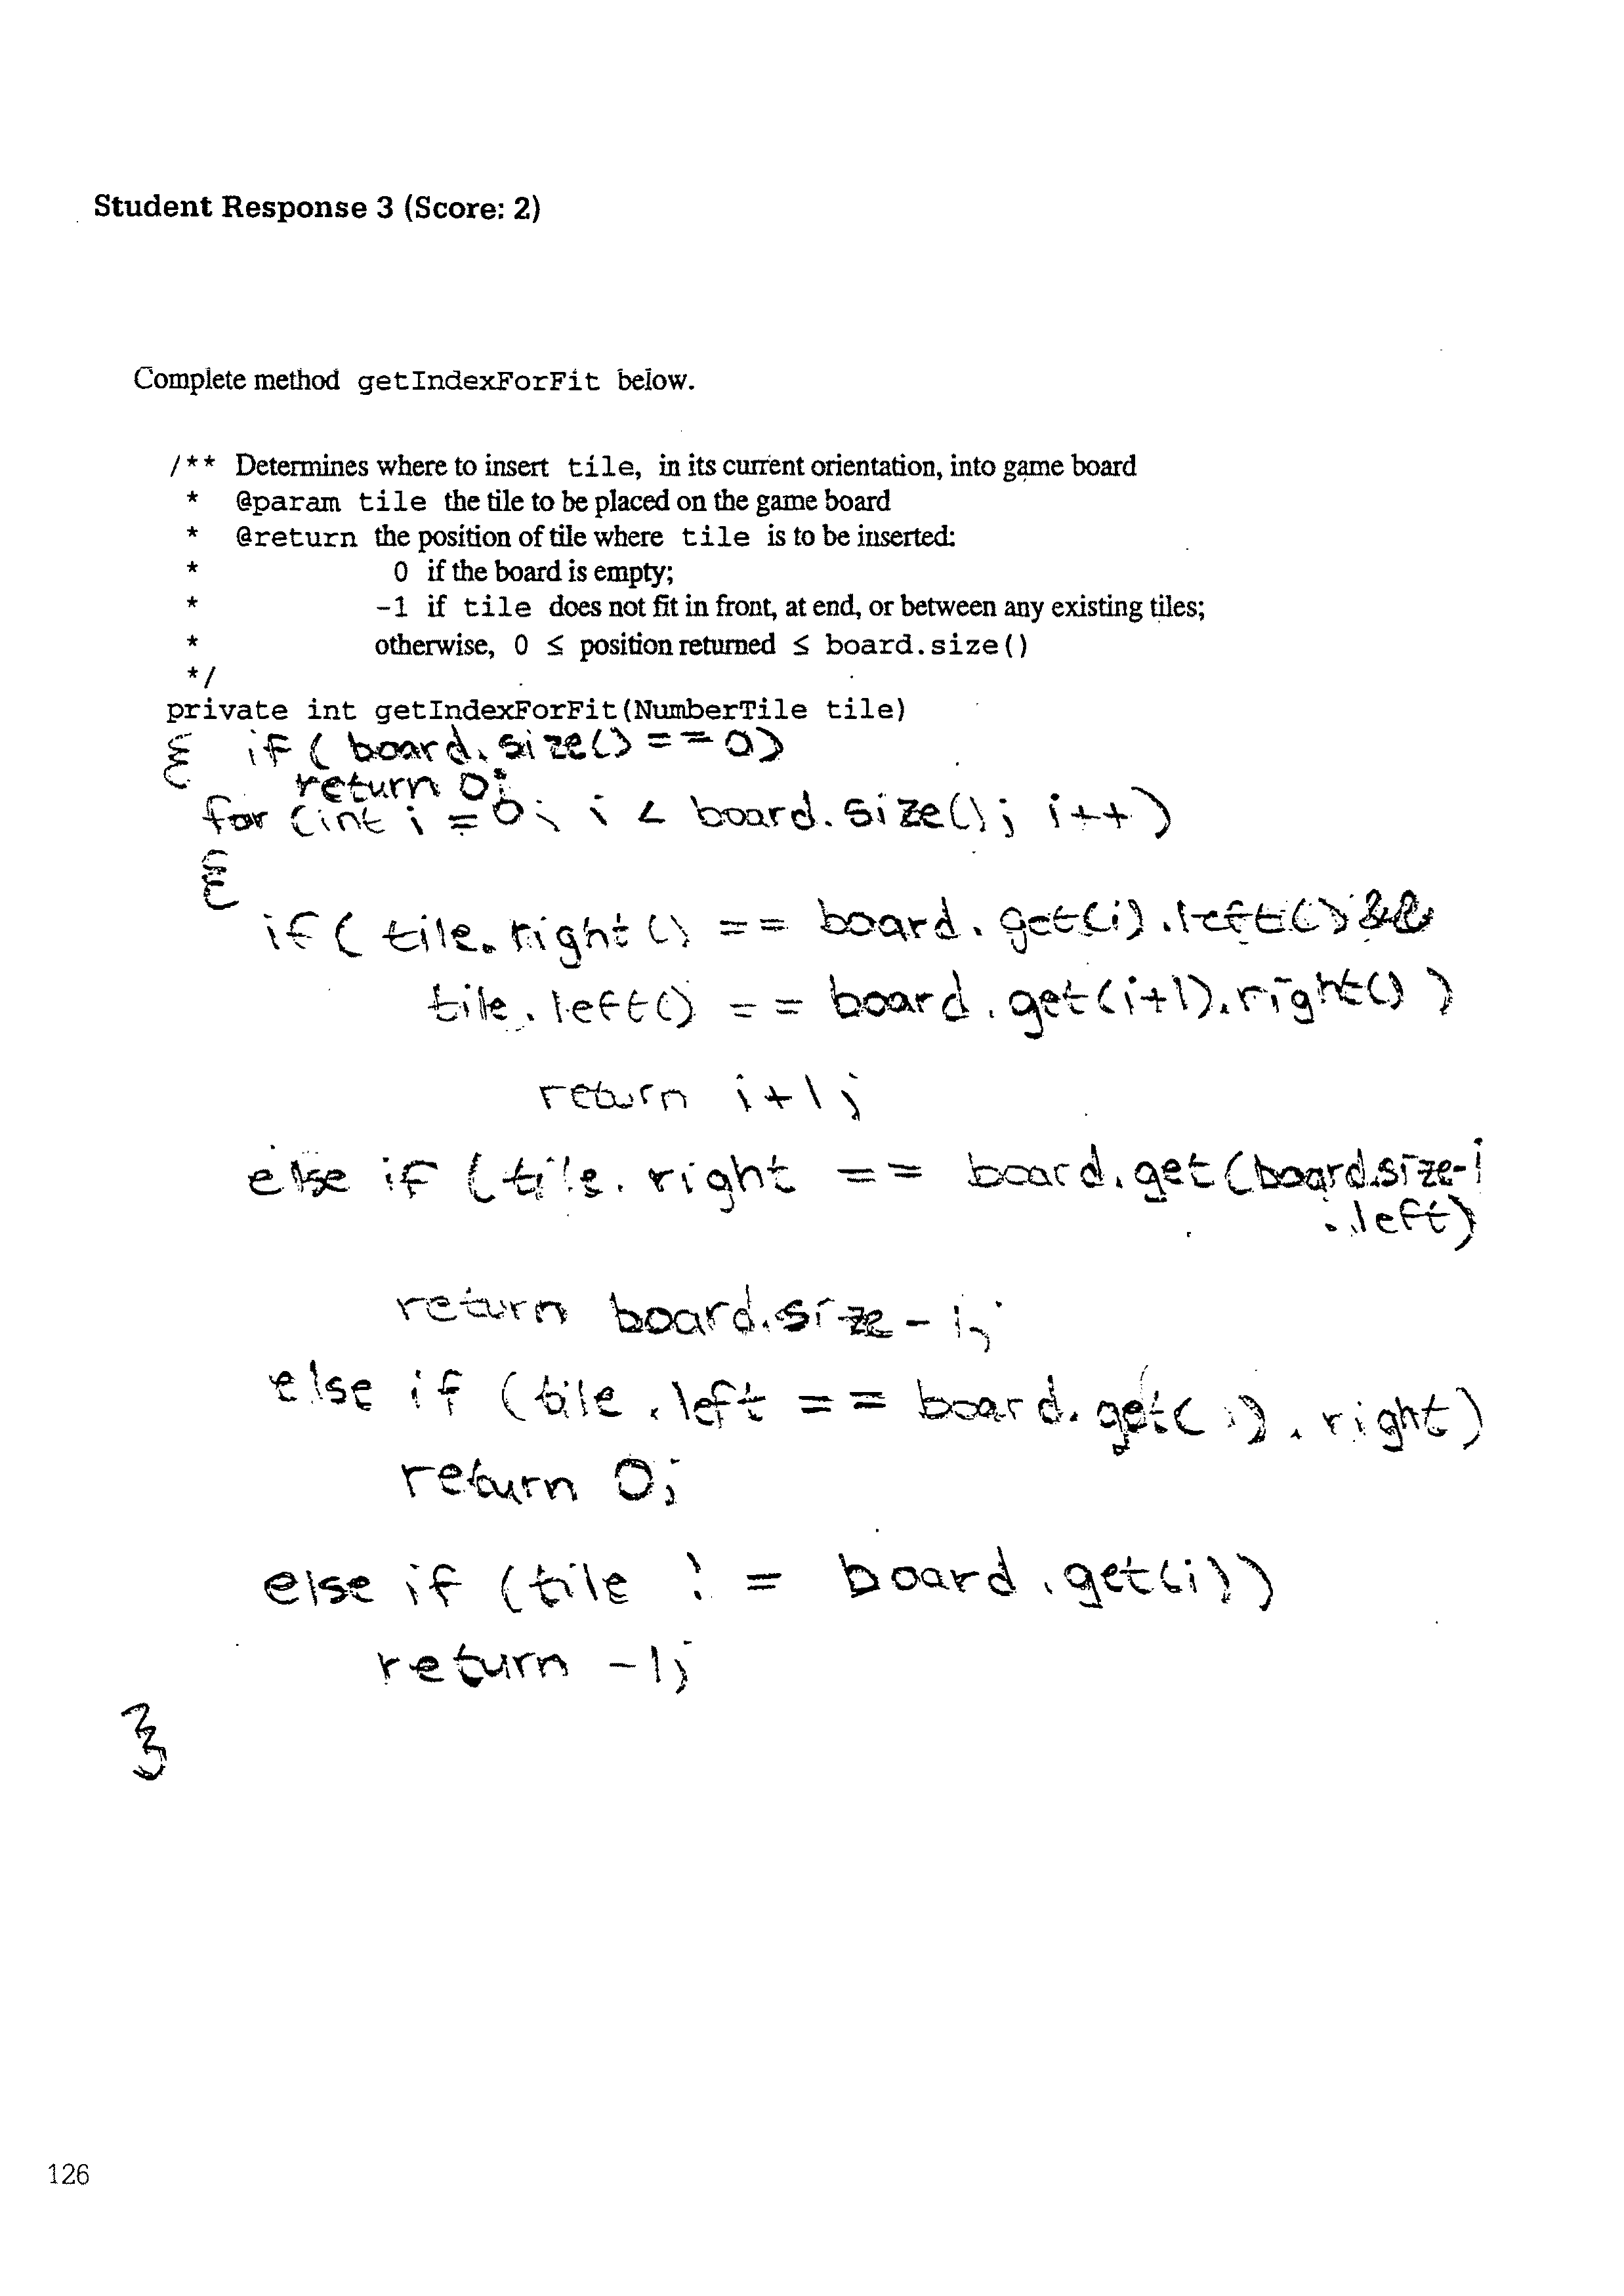 Student Response 3 (Score: 2)
Complete method getIndexForFit below.
/** Determines where to insert tile, in its current orientation, into game board
* @param tile the tile to be placed on the game board
* @return the position of tile where tile is to be inserted:
* 0 if the board is empty;
* -1 if tile does not fit in front, at end, or between any existing tiles;
* otherwise, 0 ≤ position returned ≤ board.size()
*/
private int getIndexForFit(NumberTile tile)
{ if ( board.size() == 0)
return 0;
for (int i = 0; i < board.size(); i++)
{
if ( tile.right() == board.get(i).left() &&
tile.left() == board.get(i+1).right() )
return i+1;
else if (tile.right == board.get(board.size-1
.left)
return board.size - 1;
else if (tile.left == board.get( ).right)
return 0;
else if (tile != board.get(i))
return -1;
}
126